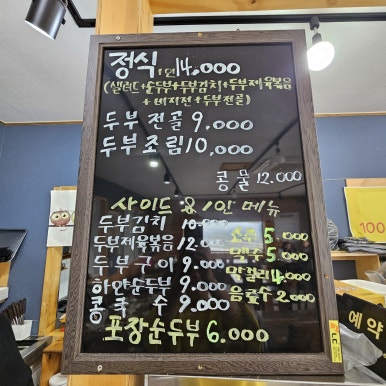 정식 1인 14,000
(샐러드+순두부+두부김치+두부제육볶음
+비지전+두부전골)
두부전골 9,000
두부조림 10,000
콩물 12,000
사이드 & 1인 메뉴
두부김치 10,000
두부제육볶음 12,000
두부구이 9,000
하얀순두부 9,000
콩국수 9,000
소주 5,000
맥주 5,000
막걸리 4,000
음료수 2,000
포장순두부 6,000
100
예약